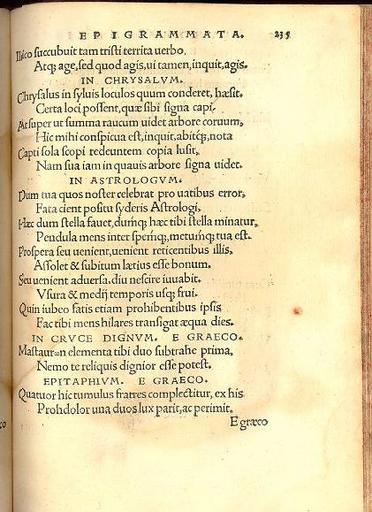 EPIGRAMMATA. 235
Ilico succubuit tam tristi territa uerbo.
Atq; age, sed quod agis, ui tamen, inquit, agis.
IN CHRYSALVM.
Chrysalus in syluis loculos quum conderet, hæsit.
Certa loci possent, quæ sibi signa capi.
At super ut summa raucum uidet arbore coruum,
Hic mihi conspicua est, inquit, abitq;, nota
Capti sola scopi redeuntem copia lusit,
Nam sua iam in quauis arbore signa uidet.
IN ASTROLOGVM.
Dum tua quos noster celebrat pro uatibus error,
Fata cient positu syderis Astrologi,
Hæc dum stella fauet, dumq; hæc tibi stella minatur,
Pendula mens inter spemq;, metumq; tua est.
Prospera seu uenient, uenient reticentibus illis,
Assolet & subitum lætius esse bonum.
Seu uenient aduersa. diu nescire iuuabit.
Vsura & medij temporis usq; frui.
Quin iubeo fatis etiam prohibentibus ipsis
Fac tibi mens hilares transigat æqua dies.
IN CRVCE DIGNVM. E GRAECO.
Mastauron elementa tibi duo subtrahe prima,
Nemo te reliquis dignior esse potest.
EPITAPHIVM. E GRAECO.
Quatuor hic tumulus fratres complectitur, ex his
Proh dolor una duos lux parit, ac perimit.
E græco